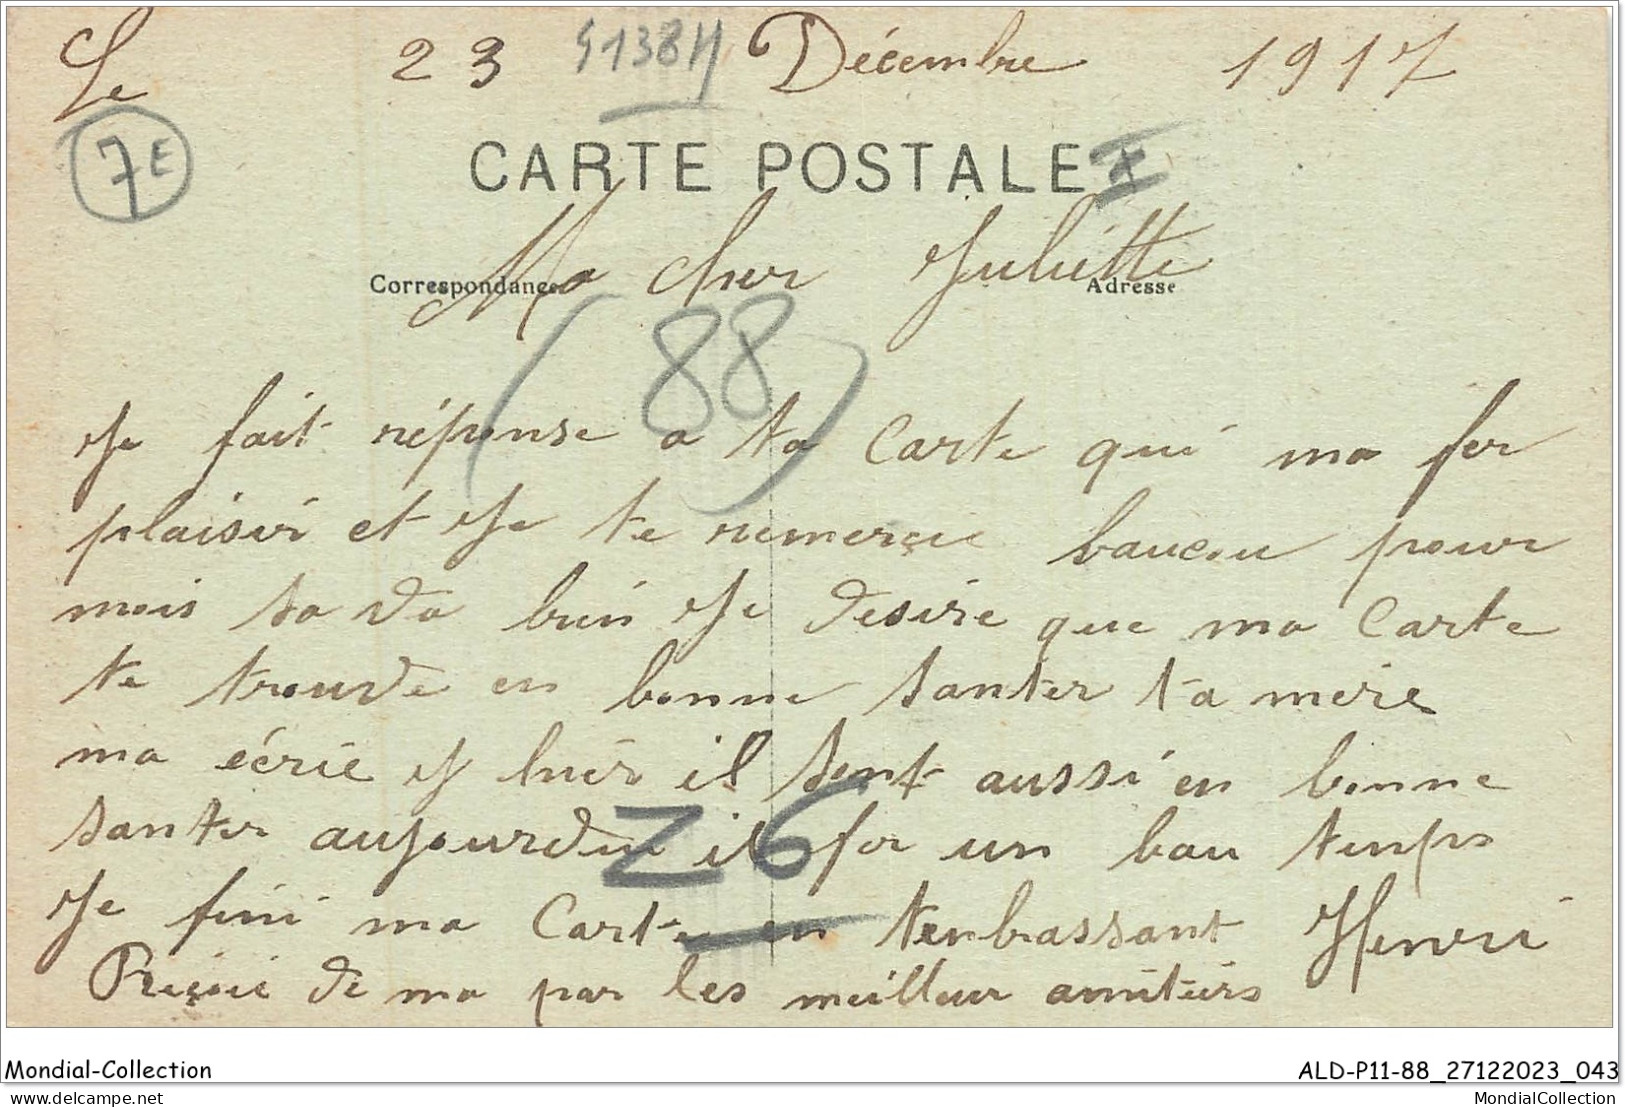 Le 23 Décembre 1917
7E
CARTE POSTALE
Correspondance Adresse
Ma cher Juliette
(88)
Je fait réponse a ta Carte qui ma fer
plaisir et Je te remerçie baucou pour
mois sa va bien Je desire que ma Carte
te trouve en bonne santer ta mère
ma écrie y hier il sent aussi en bonne
santer aujourdui il fer un bau temps
Z6
Je fini ma Carte en tenbrassant Henri
Reçoi de ma par les meilleur amitiers
Mondial-Collection ALD-P11-88_27122023_043
delcampe.net MondialCollection